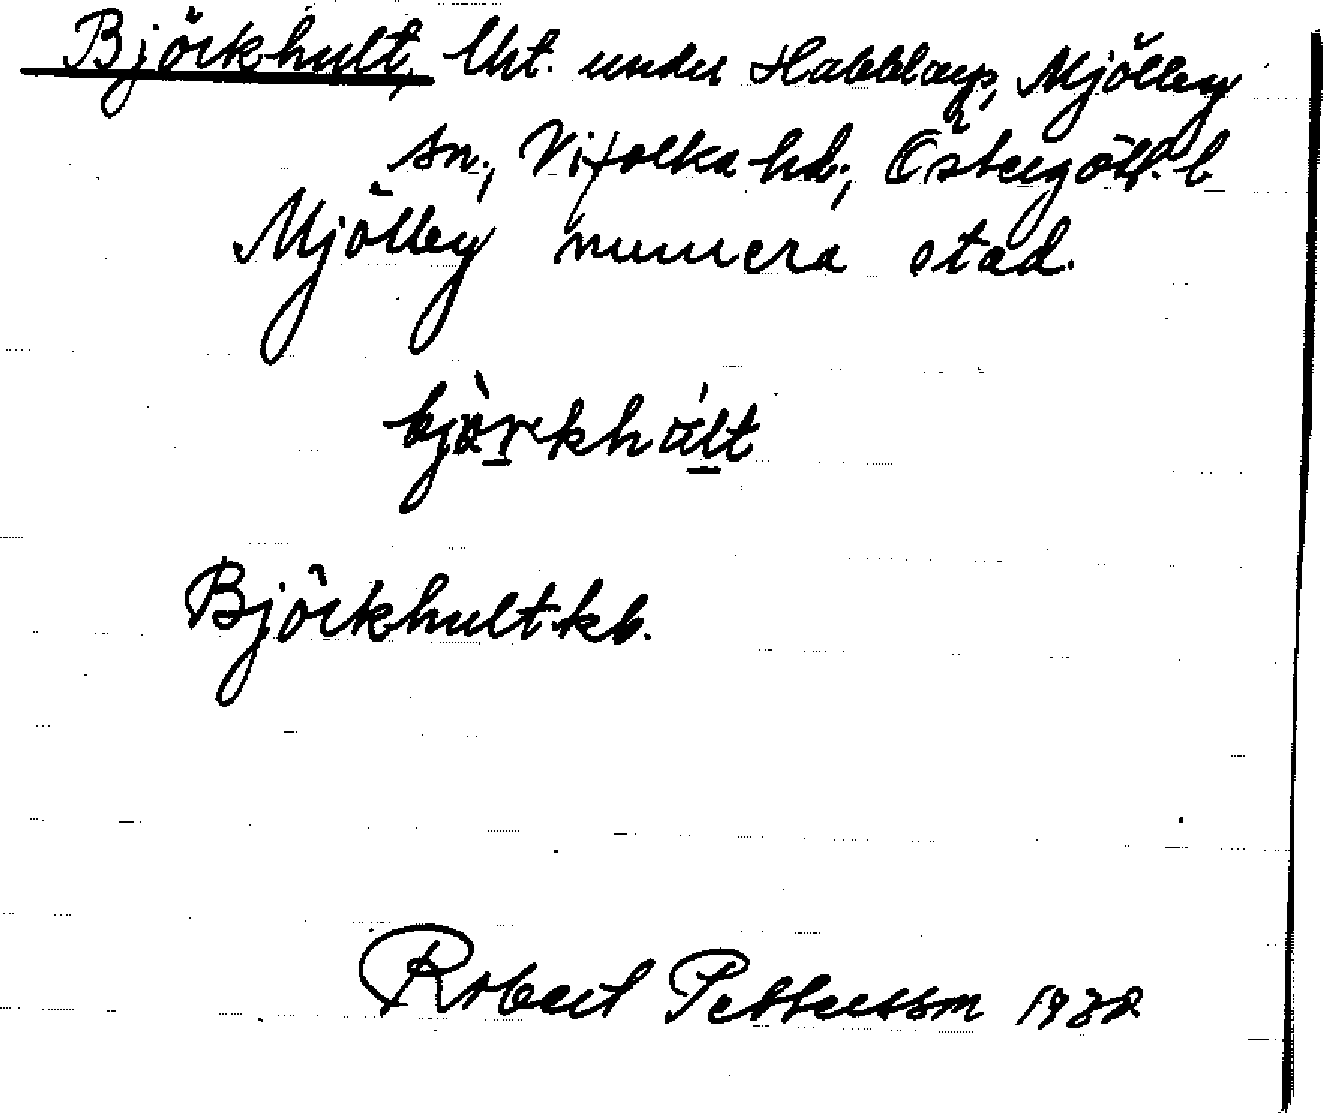 Björkhult, lht. under Habblarp, Mjölby
sn., Vifolka hd., Östergötl. l.
Mjölby numera stad.
bjò̱rkhúḻt
Björkhult kb.
Robert Pettersson 1932